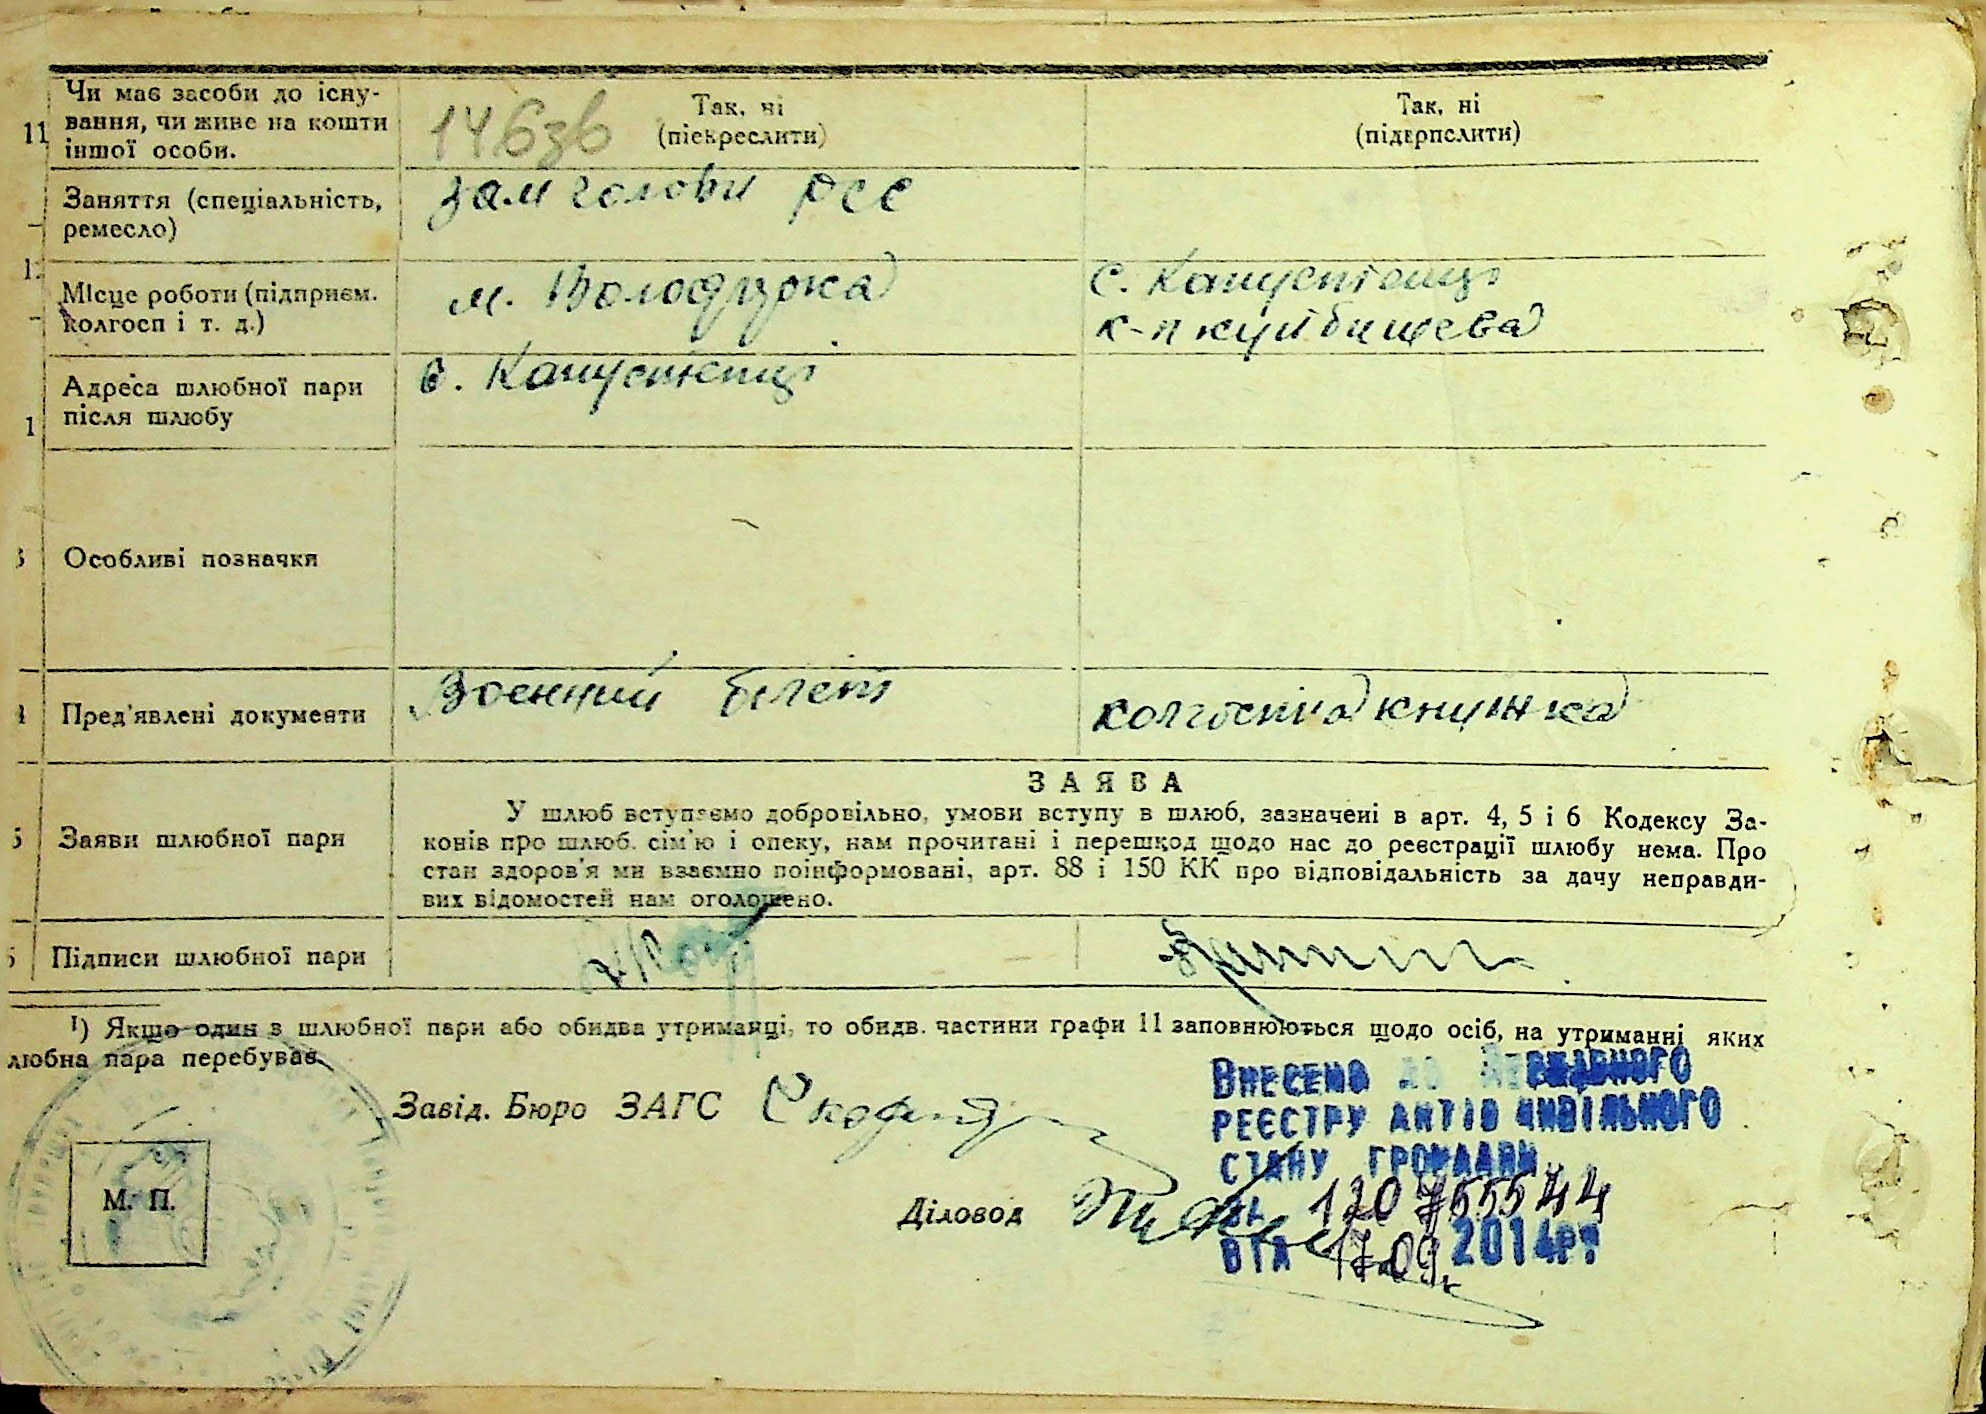 11
Чи має засоби до існу-
вання, чи живе на кошти
іншої особи.
146зв
Так, ні
(піекреслити)
Так, ні
(підерпслити)
Заняття (спеціальність,
ремесло)
зам голови
Місце роботи (підприєм.
колгосп і т. д.)
м. Володарка
с. Капустинці
к-п куйбишева
Адреса шлюбної пари
після шлюбу
с. Капустинці
Особливі позначки
Пред'явлені документи
Воєнний білет
колгоспна книжка
Заяви шлюбної пари
ЗАЯВА
У шлюб вступаємо добровільно, умови вступу в шлюб, зазначені в арт. 4, 5 і 6 Кодексу За-
конів про шлюб. сім'ю і опеку, нам прочитані і перешкод щодо нас до реєстрації шлюбу нема. Про
стан здоров'я ми взаємно поінформовані, арт. 88 і 150 КК про відповідальність за дачу неправди-
вих відомостей нам оголошено.
Підписи шлюбної пари
1) Якщо один з шлюбної пари або обидва утриманці, то обидв. частини графи 11 заповнюються щодо осіб, на утриманні яких
любна пара перебуває.
Завід. Бюро ЗАГС
М. П.
Діловод
ВНЕСЕНО ДО ДЕРЖАВНОГО
РЕЄСТРУ АКТІВ ЦИВІЛЬНОГО
СТАНУ ГРОМАДЯН
ЗА 120755544
ВІД 17.09. 2014р.